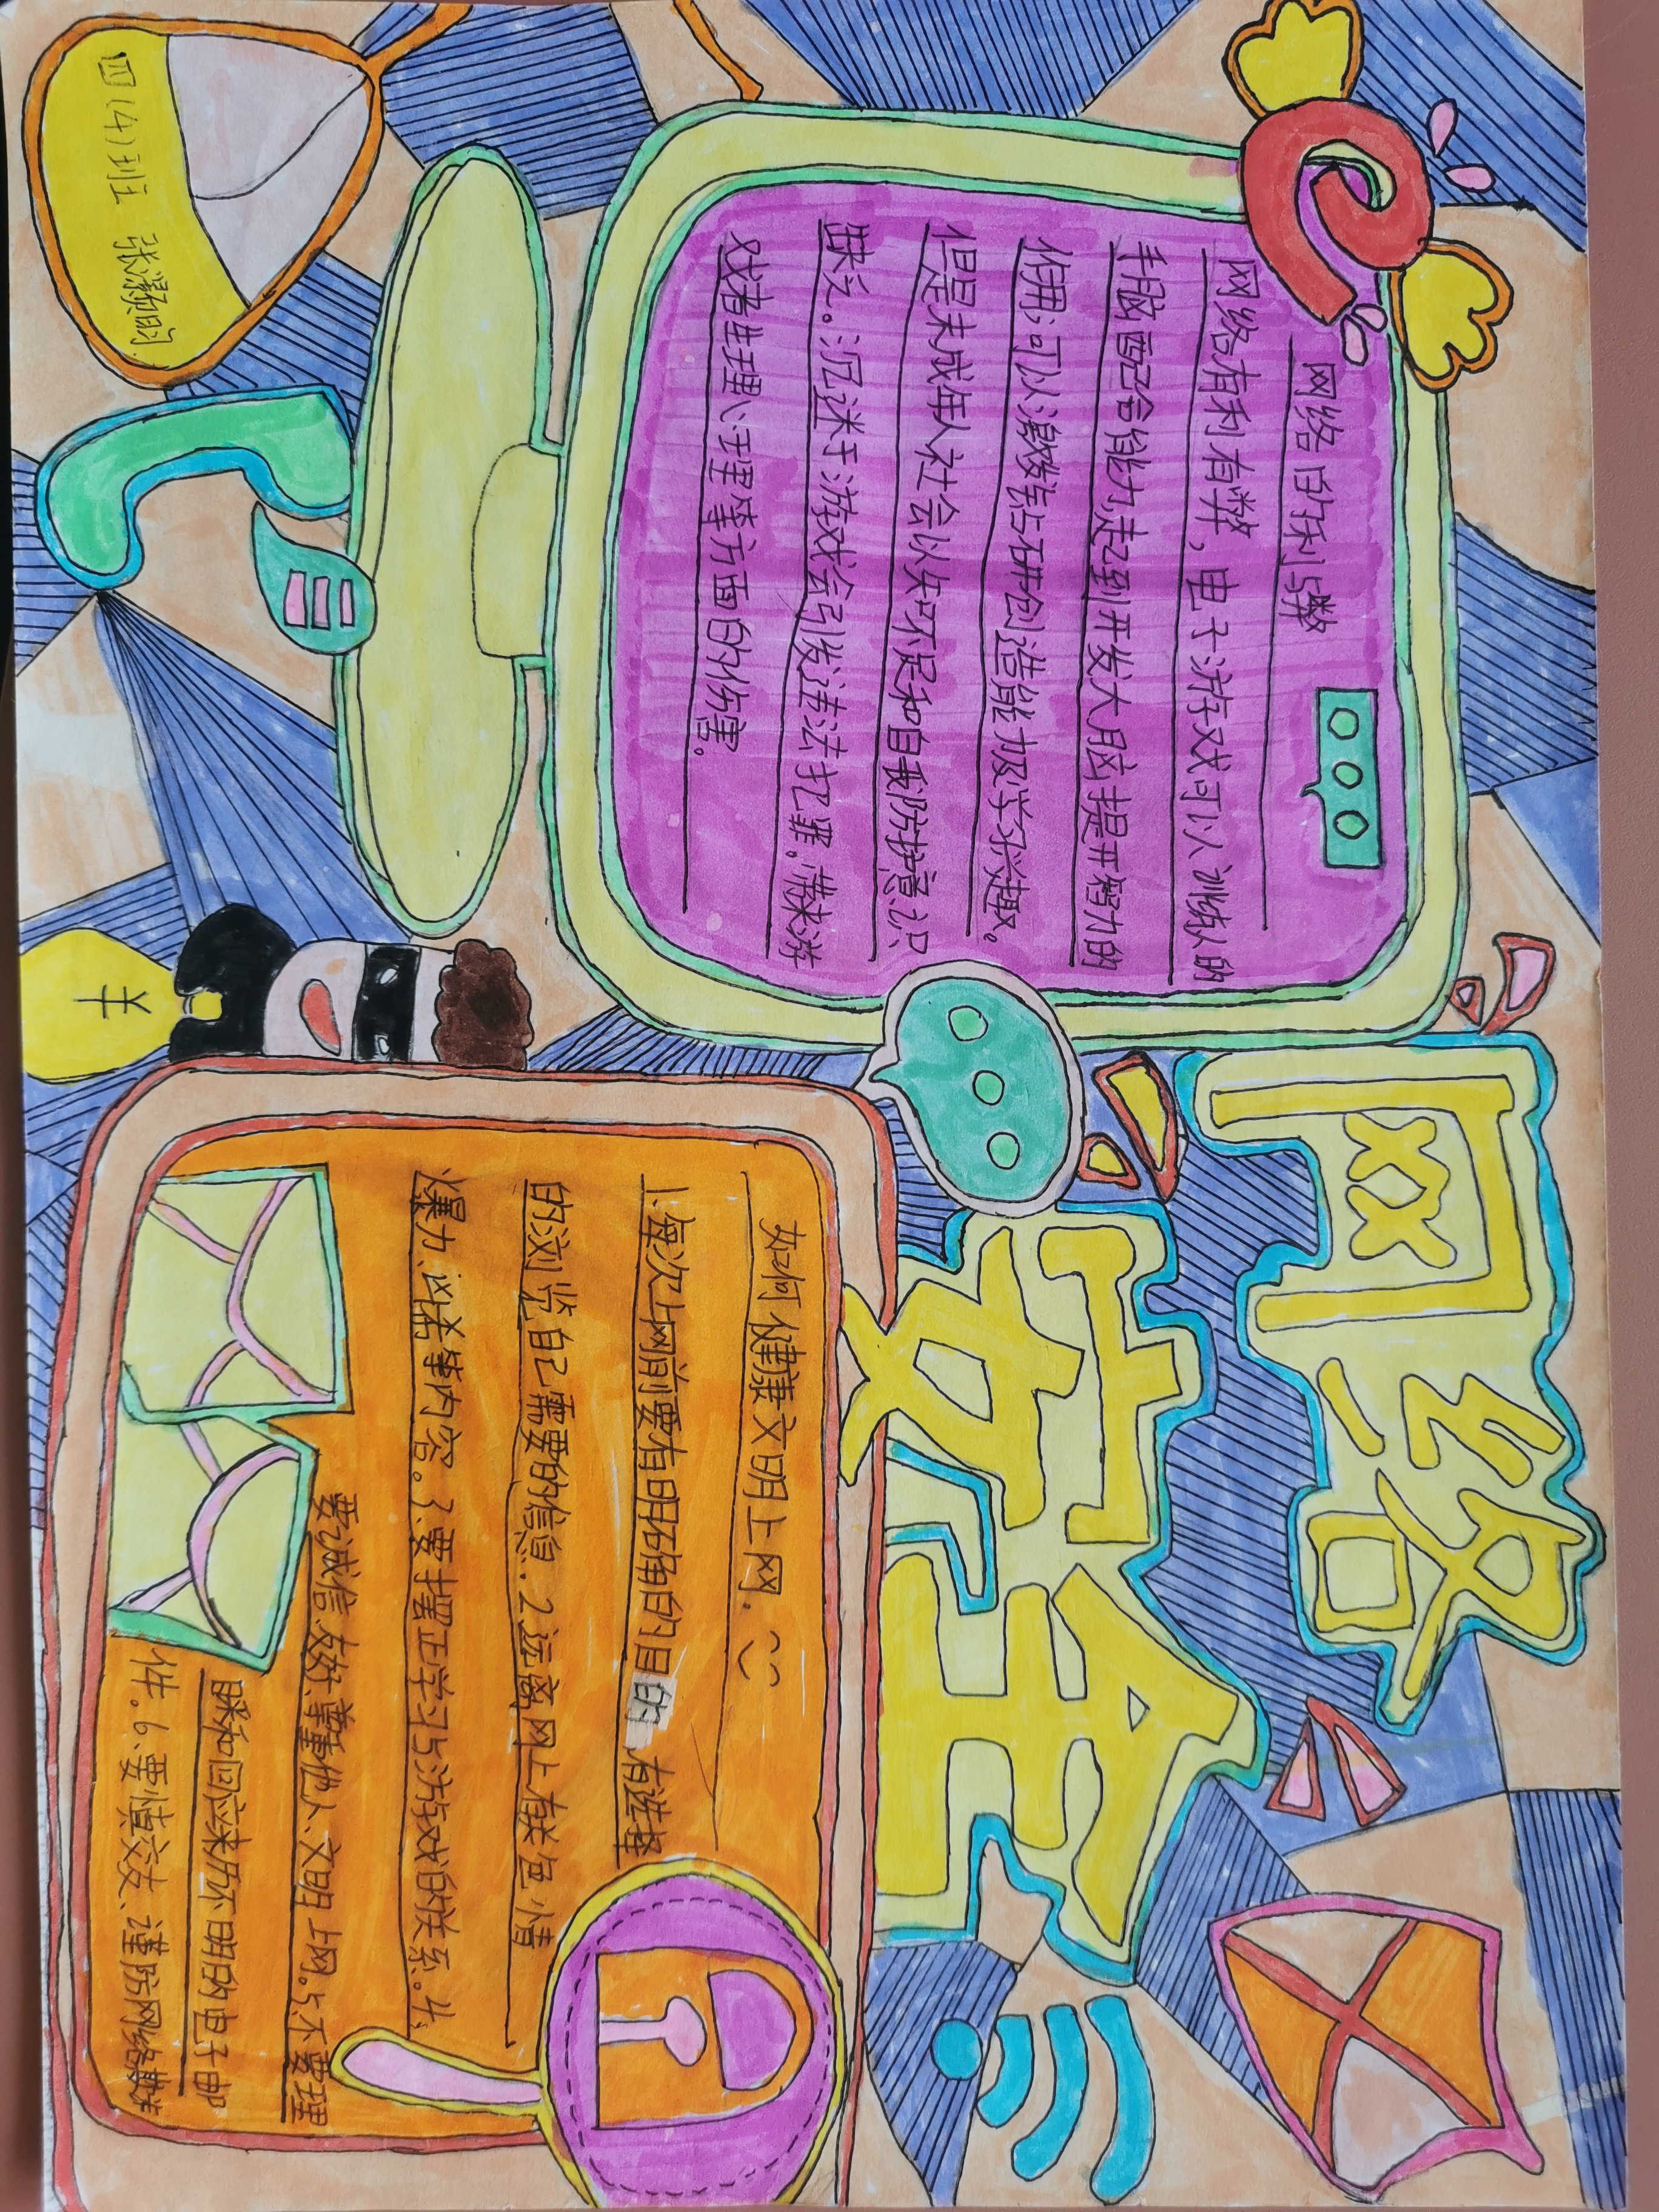 网络
安全
网络的利与弊
网络有利有弊，电子游戏可以训练人的
手脑配合能力，起到开发大脑提升智力的
作用；可以激发钻研创造能力及学习兴趣。
但是未成年人社会认知不足和自我防护意识
缺乏。沉迷于游戏会引发违法犯罪。带来游
戏者生理心理等方面的伤害。
如何健康文明上网.
1.每次上网前要有明确的目的 有选择
的浏览自己需要的信息. 2.远离网上在色情
爆力、凶杀等内容。3.要摆正学习与游戏的关系。4.
要诚信友好、尊重他人、文明上网。5.不要理
睬和回应来历不明的电子邮
件。6.要慎交友、谨防网络
四(4)班
¥